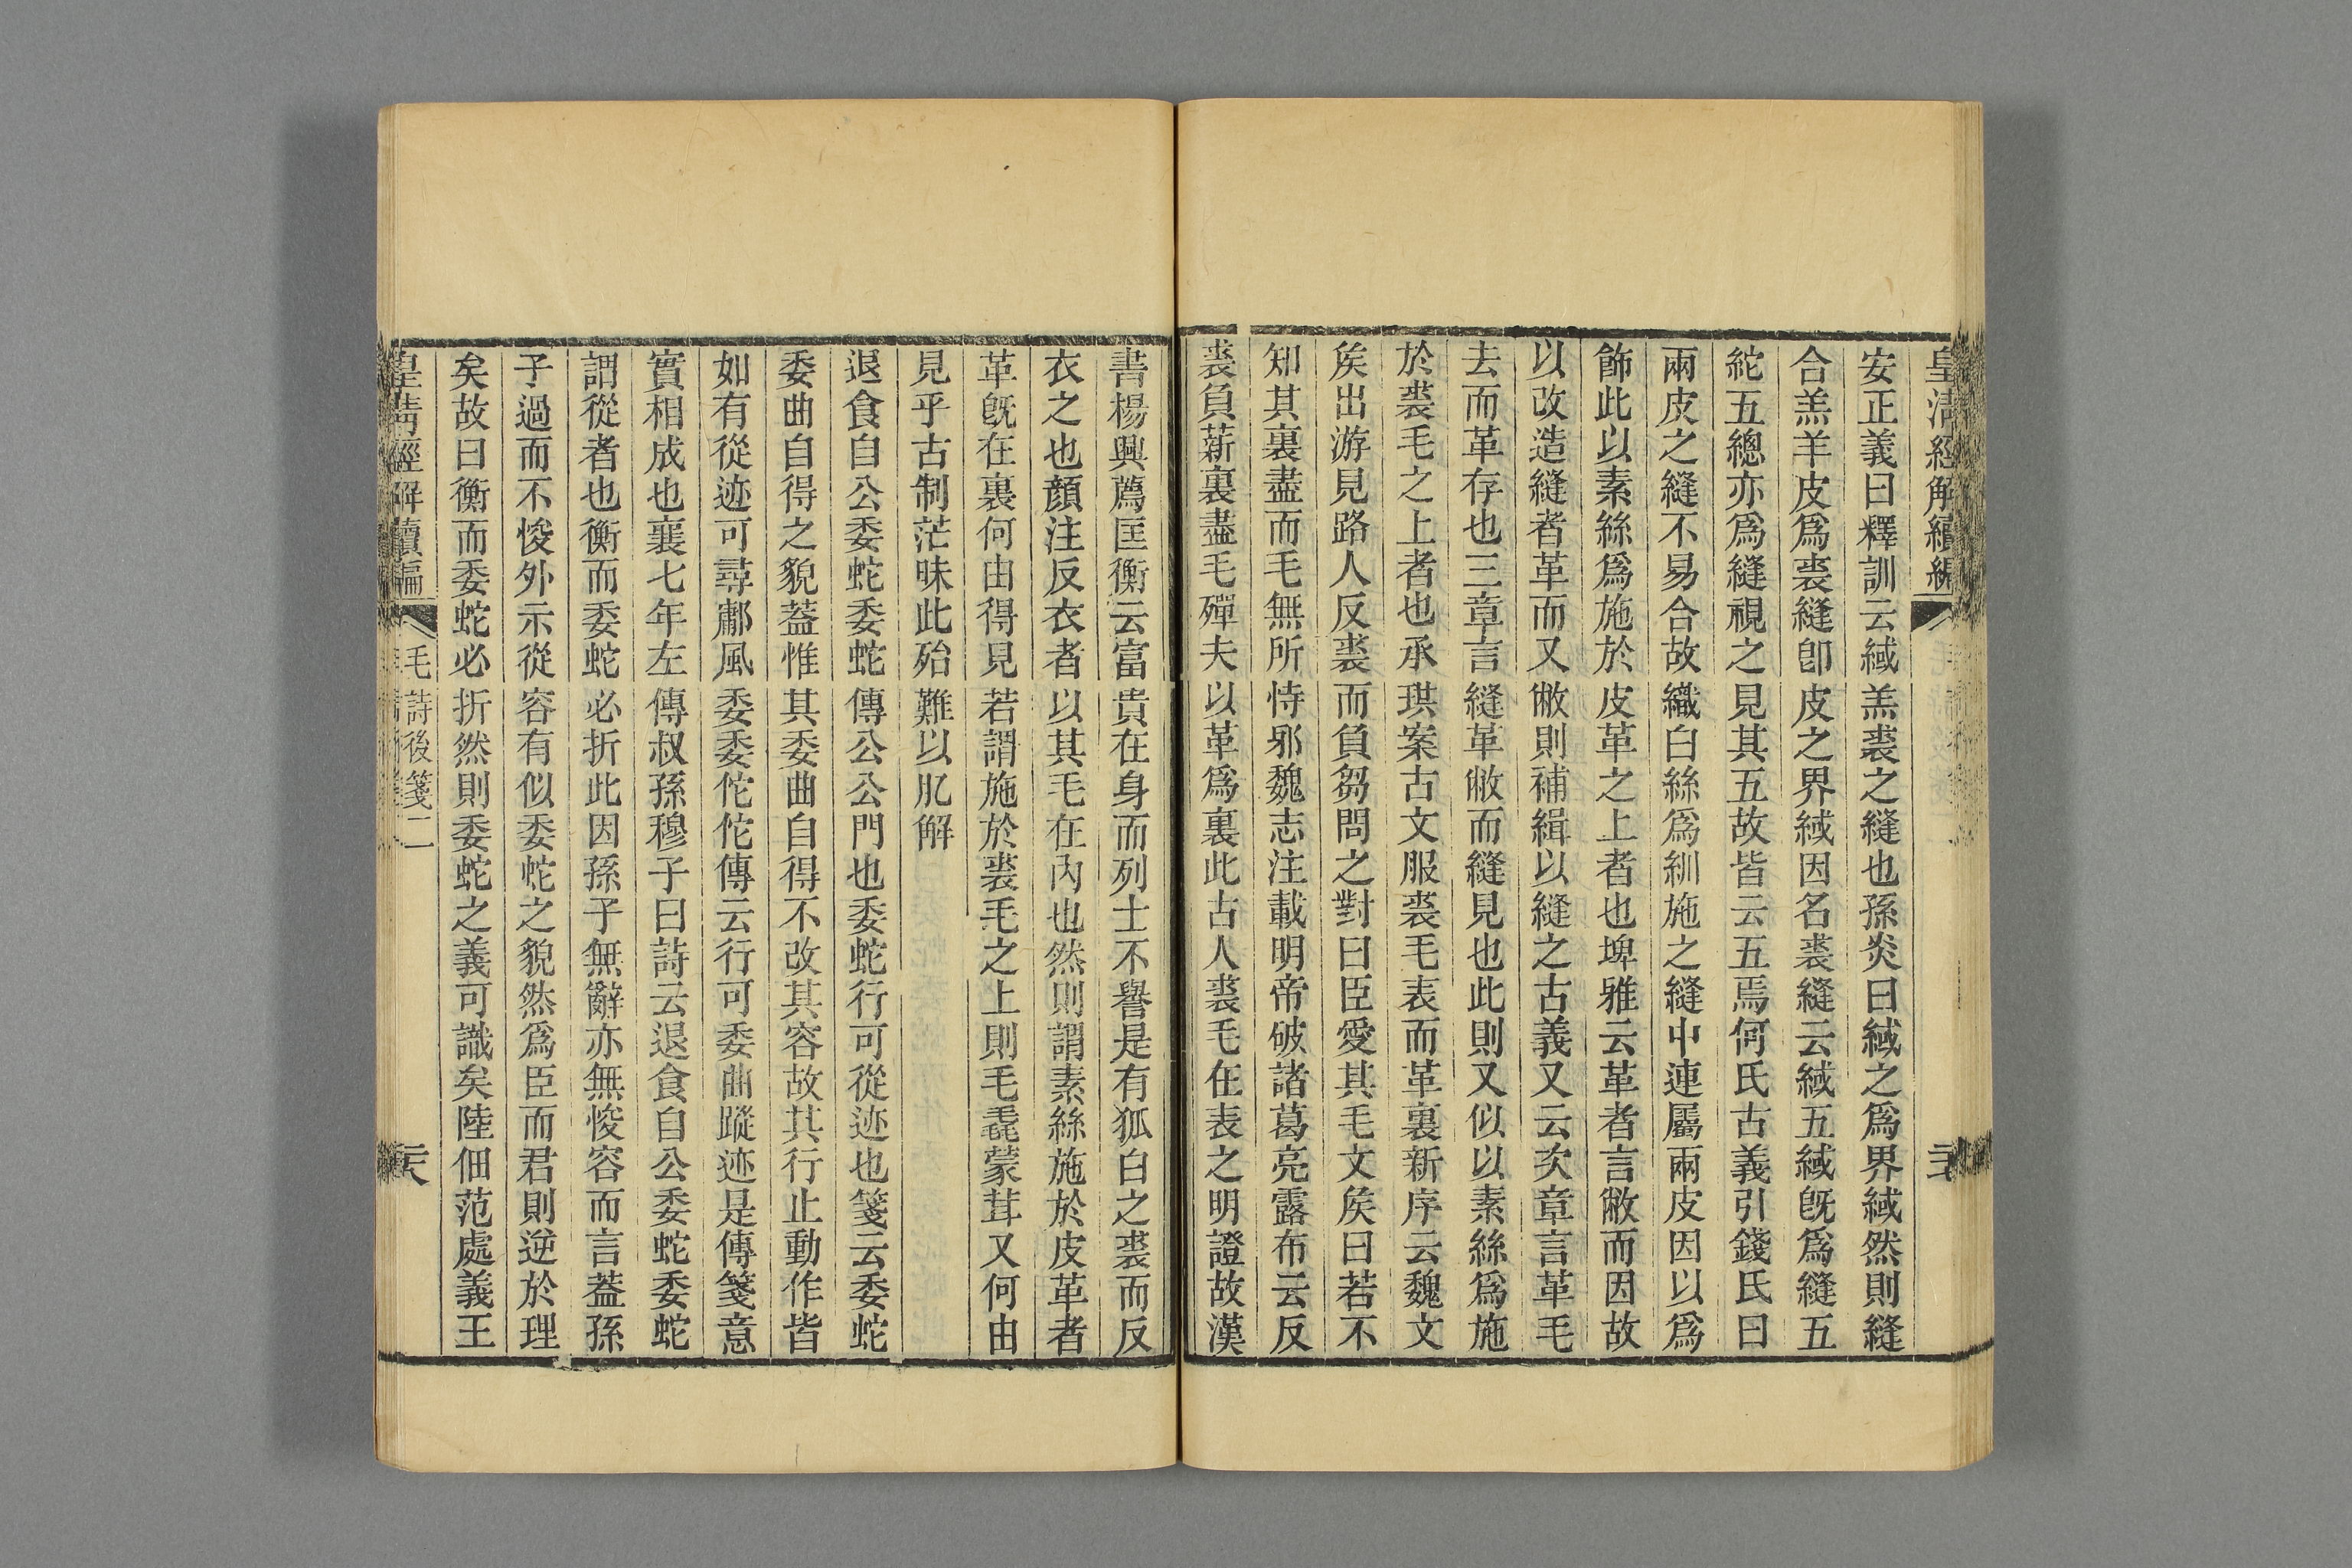 皇清經解續編
安正義曰釋訓云緎羔裘之縫也孫炎曰緎之爲界緎然則縫
合羔羊皮爲裘縫卽皮之界緎因名裘縫云緎五緎旣爲縫五
紽五總亦爲縫視之見其五故皆云五焉何氏古義引錢氏曰
兩皮之縫不易合故織白絲爲紃施之縫中連屬兩皮因以爲
飾此以素絲爲施於皮革之上者也埤雅云革者言敝而因故
以改造縫者革而又敝則補緝以縫之古義又云次章言革毛
去而革存也三章言縫革敝而縫見也此則又似以素絲爲施
於裘毛之上者也承珙案古文服裘毛表而革裏新序云魏文
矦出游見路人反裘而負芻問之對曰臣愛其毛文矦曰若不
知其裏盡而毛無所恃邪魏志注載明帝破諸葛亮露布云反
裘負薪裏盡毛殫夫以革爲裏此古人裘毛在表之明證故漢
書楊興薦匡衡云富貴在身而列士不譽是有狐白之裘而反
衣之也顏注反衣者以其毛在內也然則謂素絲施於皮革者
革旣在裏何由得見若謂施於裘毛之上則毛毳蒙茸又何由
見乎古制茫昧此殆難以肊解
退食自公委蛇委蛇傳公公門也委蛇行可從迹也箋云委蛇
委曲自得之貌蓋惟其委曲自得不改其容故其行止動作皆
如有從迹可尋鄘風委委佗佗傳云行可委曲蹤迹是傳箋意
實相成也襄七年左傳叔孫穆子曰詩云退食自公委蛇委蛇
謂從者也衡而委蛇必折此因孫子無辭亦無悛容而言蓋孫
子過而不悛外示從容有似委蛇之貌然爲臣而君則逆於理
矣故曰衡而委蛇必折然則委蛇之義可識矣陸佃范處義王
皇清經解續編 毛詩後箋二